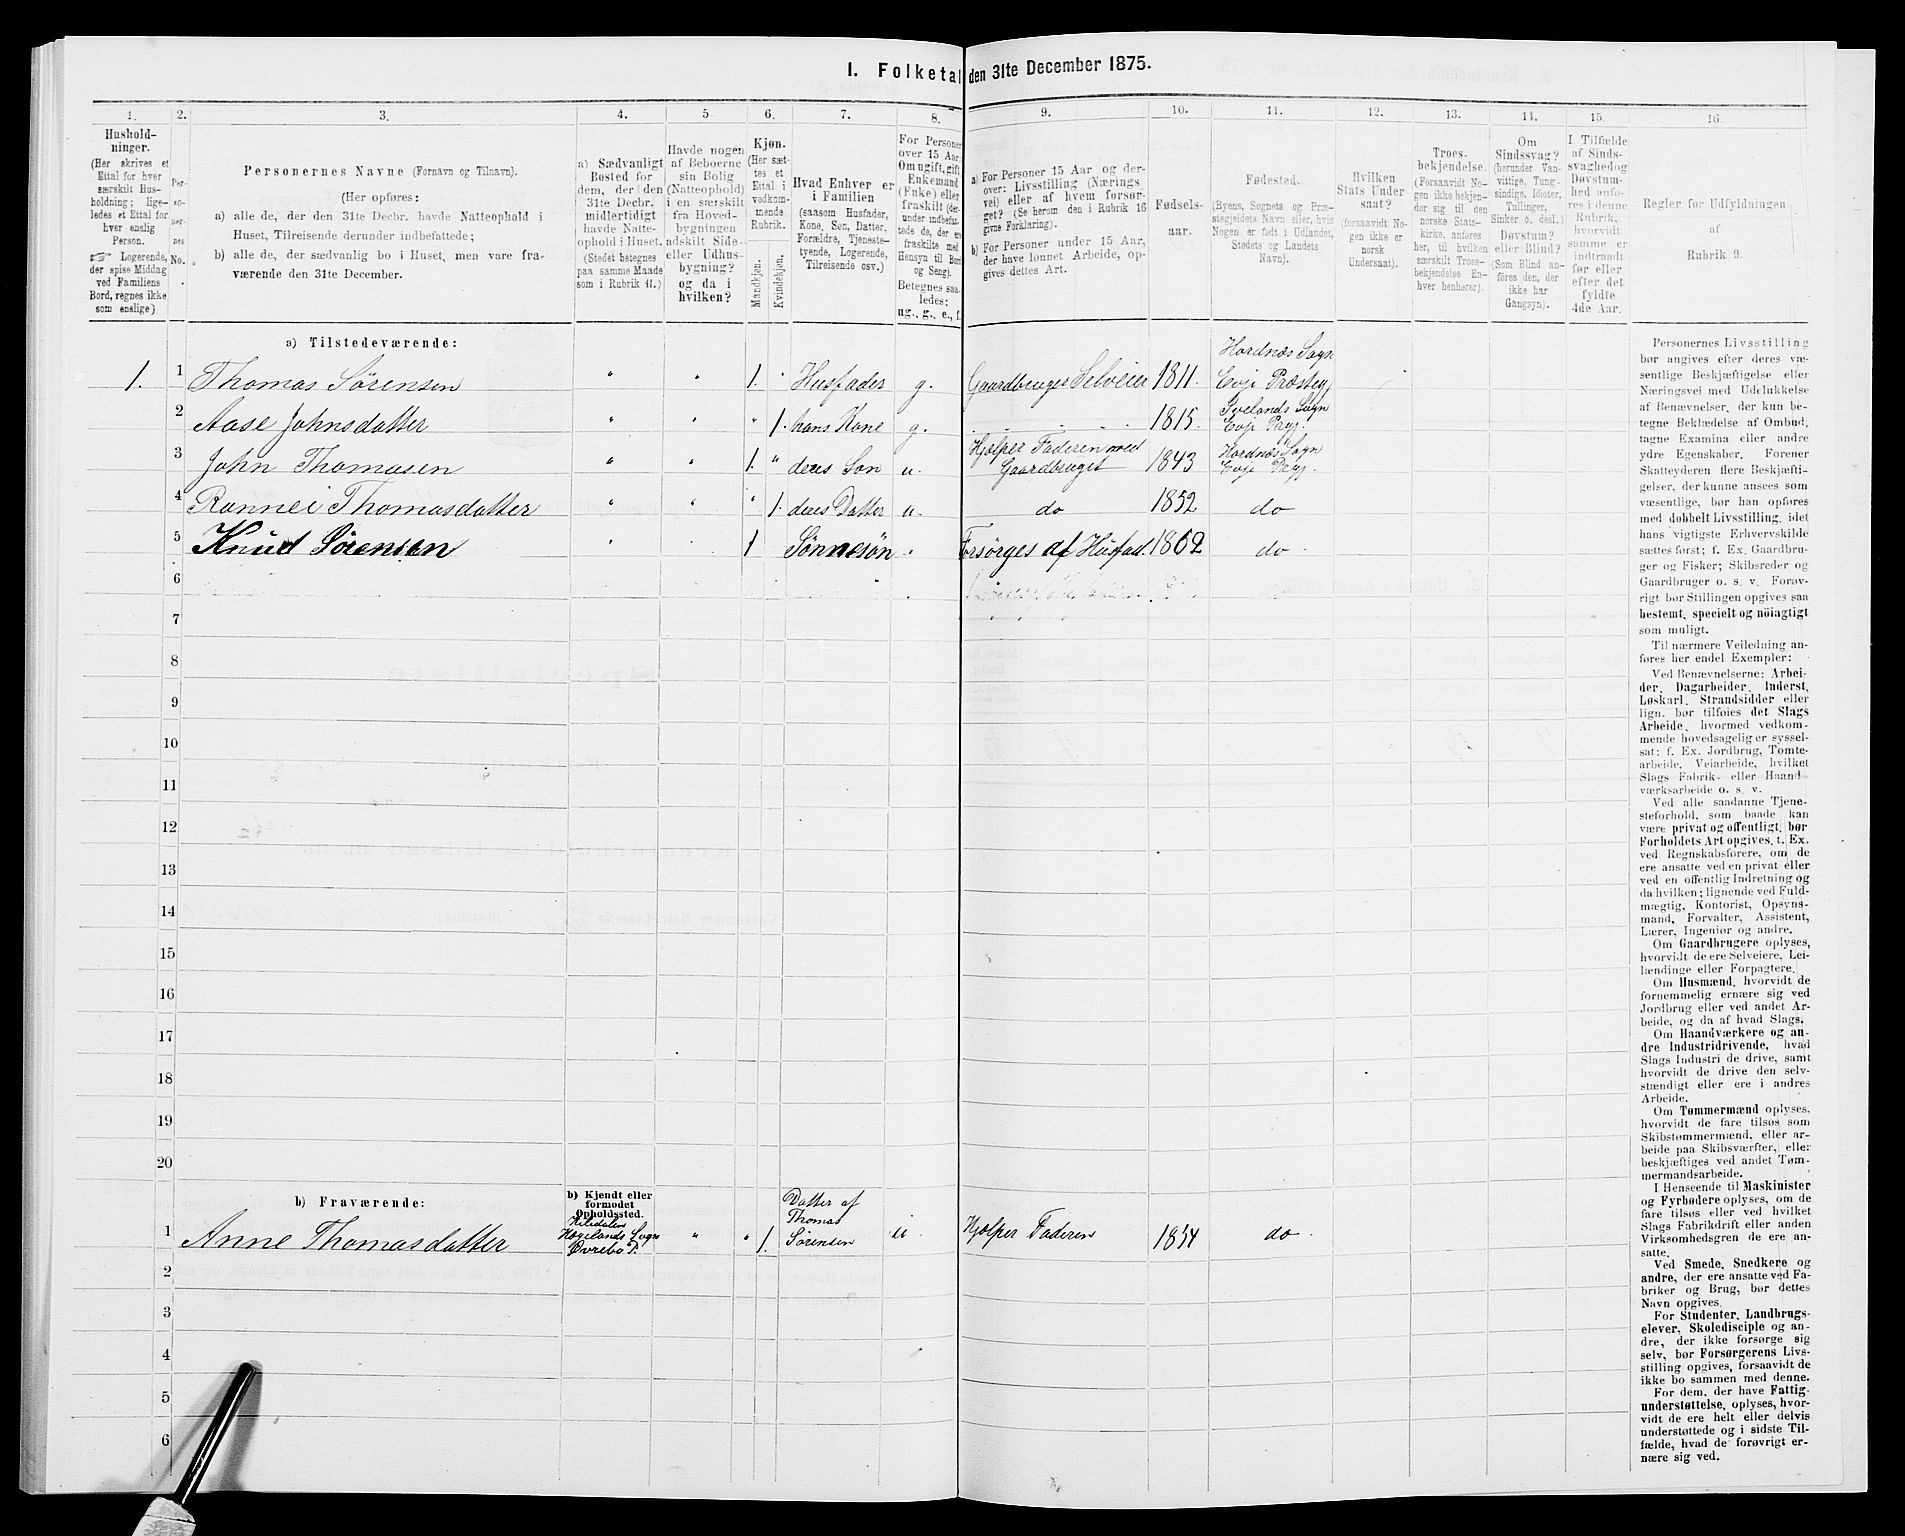 I. Folketal den 31te December 1875.
1.
Hushold-
ninger.
(Her skrives et
Ettal for hver
særskilt Hus-
holdning; lige-
ledes et Ettal for
hver enslig
Person.
☞ Logerende,
der spise Middag
ved Familiens
Bord, regnes ikke
som enslige)
2.
Per-
so-
ner-
nes
No.
3.
Personernes Navne (Fornavn og Tilnavn).
(Her opføres:
a) alle de, der den 31te Decbr. havde Natteophold i
Huset, Tilreisende derunder indbefattede;
b) alle de, der sædvanlig bo i Huset, men vare fra-
værende den 31te December.
4.
a) Sædvanligt
Bosted for
dem, der den
31te Decbr.
midlertidigt
havde Natte-
ophold i Huset.
(Stedet betegnes
paa samme Maade
som i Rubrik 11.)
5.
Havde nogen
af Beboerne
sin Bolig
(Natteophold)
i en særskilt
fra Hoved-
bygningen
adskilt Side-
eller Udhus-
bygning?
og da i
hvilken?
6.
Kjøn.
(Her sæt-
tes et
Ettal i
vedkom-
mende
Rubrik.
Mandkjøn.
Kvindekjøn.
7.
Hvad Enhver er
i Familien
(saasom Husfader,
Kone, Søn, Datter,
Forældre, Tjeneste-
tyende, Logerende,
Tilreisende osv.)
8.
For Personer
over 15 Aar:
Om ugift, gift,
Enkemand
(Enke) eller
fraskilt (der-
under indbefat-
tede de, der ere
fraskilte med
Hensyn til Bord
og Seng).
Betegnes saa-
ledes:
ug., g., e., f.
9.
a) For Personer 15 Aar og der-
over: Livsstilling (Nærings-
vei) eller af hvem forsør-
get? (Se herom den i Rubrik 16
givne Forklaring).
b) For Personer under 15 Aar,
der have lønnet Arbeide, op-
gives dettes Art.
10.
Fødsels-
aar.
11.
Fødested.
(Byens, Sognets og Præ-
stegjeldets Navn eller, hvis
Nogen er født i Udlandet,
Stedets og Landets
Navn).
12.
Hvilken
Stats Under-
saat?
(forsaavidt No-
gen ikke er
norsk
Undersaat).
13.
Troes-
bekjendelse.
(Forsaavidt No-
gen ikke bekjen-
der sig til den
norske Stats-
kirke, anføres
her, til hvilken
særskilt Troes-
bekjendelse En-
hver henhører).
14.
Om
Sindssvag?
(herunder Van-
vittige, Tung-
sindige, Idioter,
Tullinger,
Sinker o. desl.)
Døvstum?
eller Blind?
(Som Blind an-
føres den, der
ikke har
Gangsyn).
15.
I Tilfælde
af Sinds-
svaghed og
Døvstum-
hed anfø-
res i denne
Rubrik,
hvorvidt
samme er
indtraadt
før eller
efter det
fyldte
4de Aar.
16.
Regler for Udfyldningen
af
Rubrik 9.
a) Tilstedeværende:
1. 1 Thomas Sørensen " " 1. " Husfader g. Gaardbruger Selveier 1811. Hordnæs Sogn
Evje Præstegj
2 Aase Johnsdatter " " " 1. hans Kone g. 1815. Iveland's Sogn
Evje Prgj.
3 John Thomasen " " 1. " deres Søn u. Hjælper Faderen med
Gaardbruget 1843 Hordnæs Sogn
Evje Prgj.
4 Rannei Thomasdatter " " " 1. deres Datter u. do 1852 do
5 Knud Sørensen " 1 Sønnesøn Forsørges af Husfad. 1862 do
6
7
8
9
10
11
12
13
14
15
16
17
18
19
20
b) Fraværende:
b) Kjendt eller
formodet
Opholdssted.
1 Anne Thomasdatter
Høgelands Sogn
Øvrebø P. " " 1.
Datter af
Thomas
Sørensen
u Hjælper Faderen 1854 do
2
3
4
5
6
Personernes Livsstilling
bør angives efter deres væ-
sentlige Beskjæftigelse eller
Næringsvei med Udelukkelse
af Benævnelser, der kun be-
tegne Beklædelse af Ombud,
tagne Examina eller andre
ydre Egenskaber. Forener
Skatteyderen flere Beskjæfti-
gelser, der kunne ansees som
væsentlige, bør han opføres
med dobbelt Livsstilling, idet
hans vigtigste Erhvervskilde
sættes først; f. Ex. Gaardbru-
ger og Fisker; Skibsreder og
Gaardbruger o. s. v. Forøv-
rigt bør Stillingen opgives saa
bestemt, specielt og nöiagtigt
som muligt.
Til nærmere Veiledning an-
føres her endel Exempler:
Ved Benævnelserne: Arbei-
der, Dagarbeider, Inderst,
Løskarl, Strandsidder eller
lign. bør tilføies det Slags
Arbeide, hvormed vedkom-
mende hovedsagelig er syssel-
sat; f. Ex. Jordbrug, Tomte-
arbeide, Veiarbeide, hvilket
Slags Fabrik- eller Haand-
værksarbeide o. s. v.
Ved alle saadanne Tjene-
steforhold, som baade kan
være privat og offentligt, bør
Forholdets Art opgives, t. Ex.
ved Regnskabsførere, om de
ere ansatte ved en privat eller
ved en offentlig Indretning og
da hvilken; lignende ved Fuld-
mægtig, Kontorist, Opsyns-
mand, Forvalter, Assistent,
Lærer, Ingeniør og andre.
Om Gaardbrugere oplyses,
hvorvidt de ere Selveiere, Lei-
lændinge eller Forpagtere.
Om Husmænd, hvorvidt de
fornemmelig ernære sig ved
Jordbrug eller ved andet Ar-
beide, og da af hvad Slags.
Om Haandværkere og an-
dre Industridrivende, hvad
Slags Industri de drive, samt
hvorvidt de drive den selv-
stændigt eller ere i andres
Arbeide.
Om Tømmermænd oplyses,
hvorvidt de fare tilsøs som
Skibstømmermænd, eller ar-
beide paa Skibsværfter, eller
beskjæftiges ved andet Tøm-
mermandsarbeide.
I Henseende til Maskinister
og Fyrbødere oplyses, om de
fare tilsøs eller ved hvilket
Slags Fabrikdrift eller anden
Virksomhedsgren de ere an-
satte.
Ved Smede, Snedkere og
andre, der ere ansatte ved Fa-
briker og Brug, bør dettes
Navn opgives.
For Studenter, Landbrugs-
elever, Skoledisciple og an-
dre, der ikke forsørge sig
selv, bør Forsørgerens Livs-
stilling opgives, forsaavidt de
ikke bo sammen med denne.
For dem, der have Fattig-
understøttelse, oplyses, hvor-
vidt de ere helt eller delvis
understøttede og i sidste Til-
fælde, hvad de forøvrigt er-
nære sig ved.